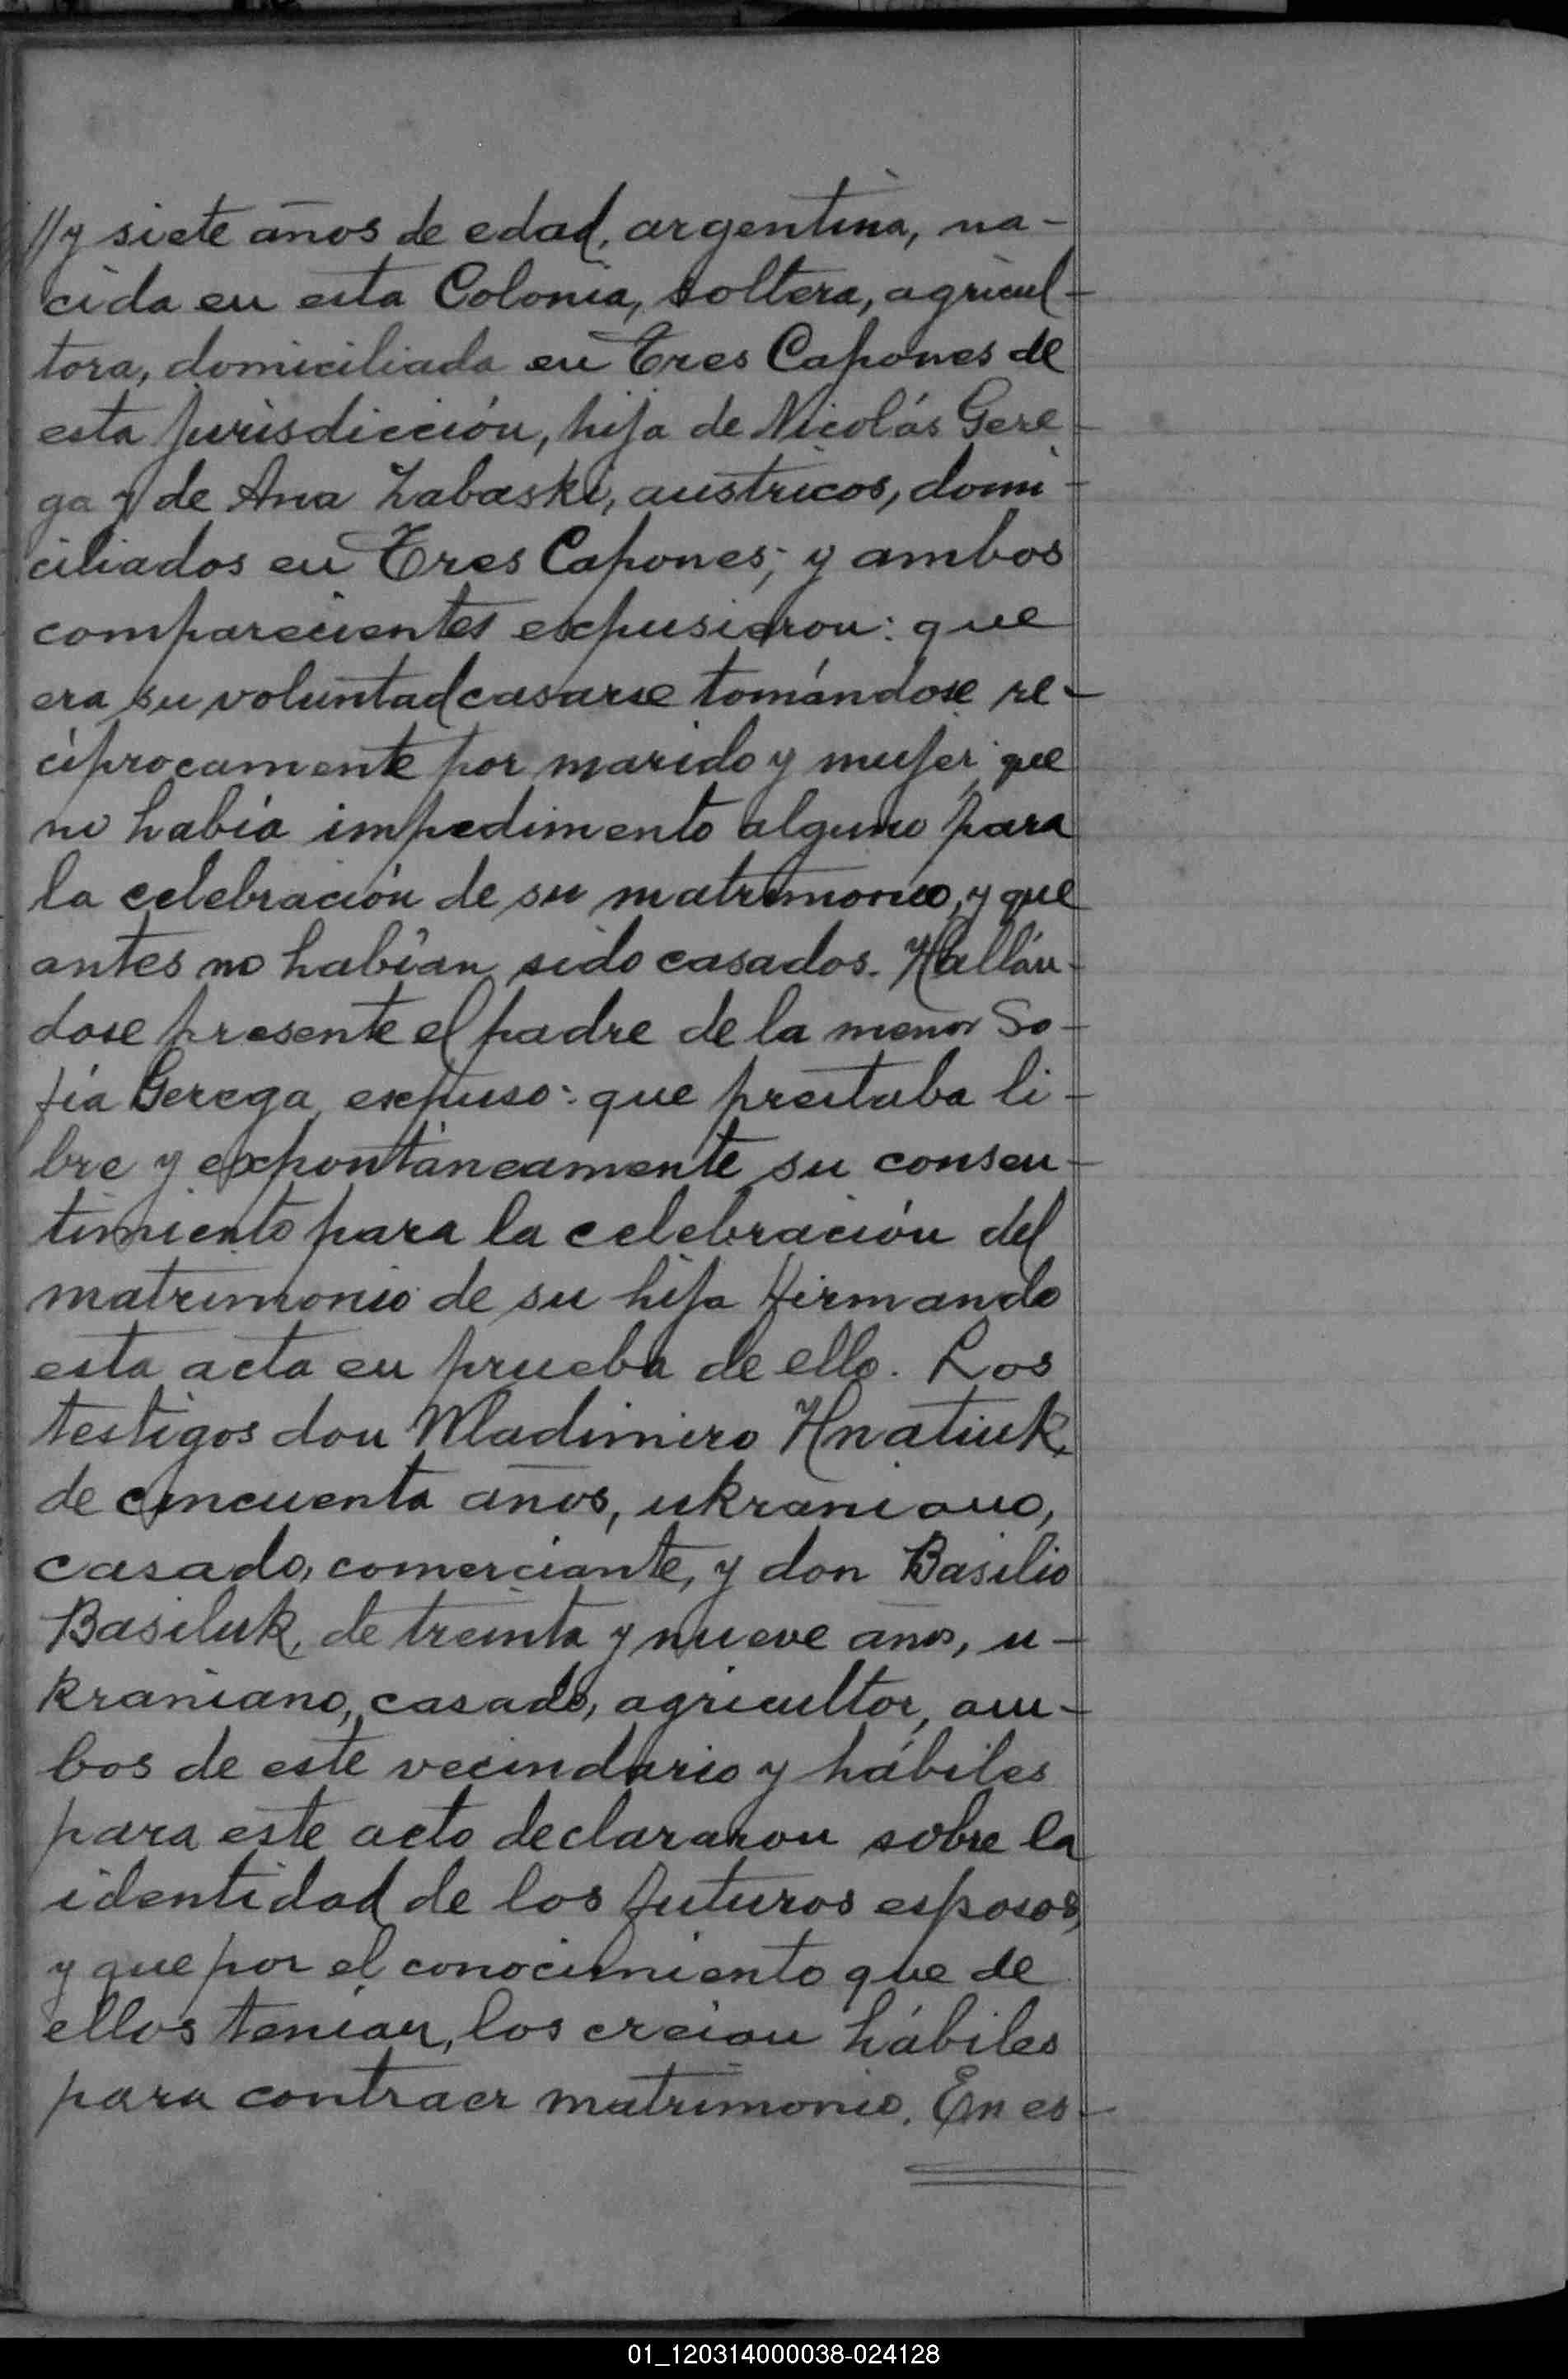 //y siete años de edad, argentina, na-
cida en esta Colonia, soltera, agricul-
tora, domiciliada en Tres Capones de
esta jurisdicción, hija de Nicolás Gere
ga y de Ana Zabaski, austricos, domi-
ciliados en Tres Capones; y ambos
comparecientes expusieron: que
era su voluntad casarse tomándose re-
ciprocamente por marido y mujer, que
no había impedimento alguno para
la celebración de su matrimonio, y que
antes no habían sido casados. Hallán-
dose presente el padre de la menor So-
fía Gerega, expuso: que prestaba li-
bre y expontáneamente su consen-
timiento para la celebración del
matrimonio de su hija firmando
esta acta en prueba de ello. Los
testigos don Wladimiro Hnatiuk,
de cincuenta años, ukraniano,
casado, comerciante, y don Basilio
Basiluk, de treinta y nueve años, u-
kraniano, casado, agricultor, am-
bos de este vecindario y hábiles
para este acto declararon sobre la
identidad de los futuros esposos,
y que por el conocimiento que de
ellos tenían, los creían hábiles
para contraer matrimonio. En es-
01_120314000038-024128